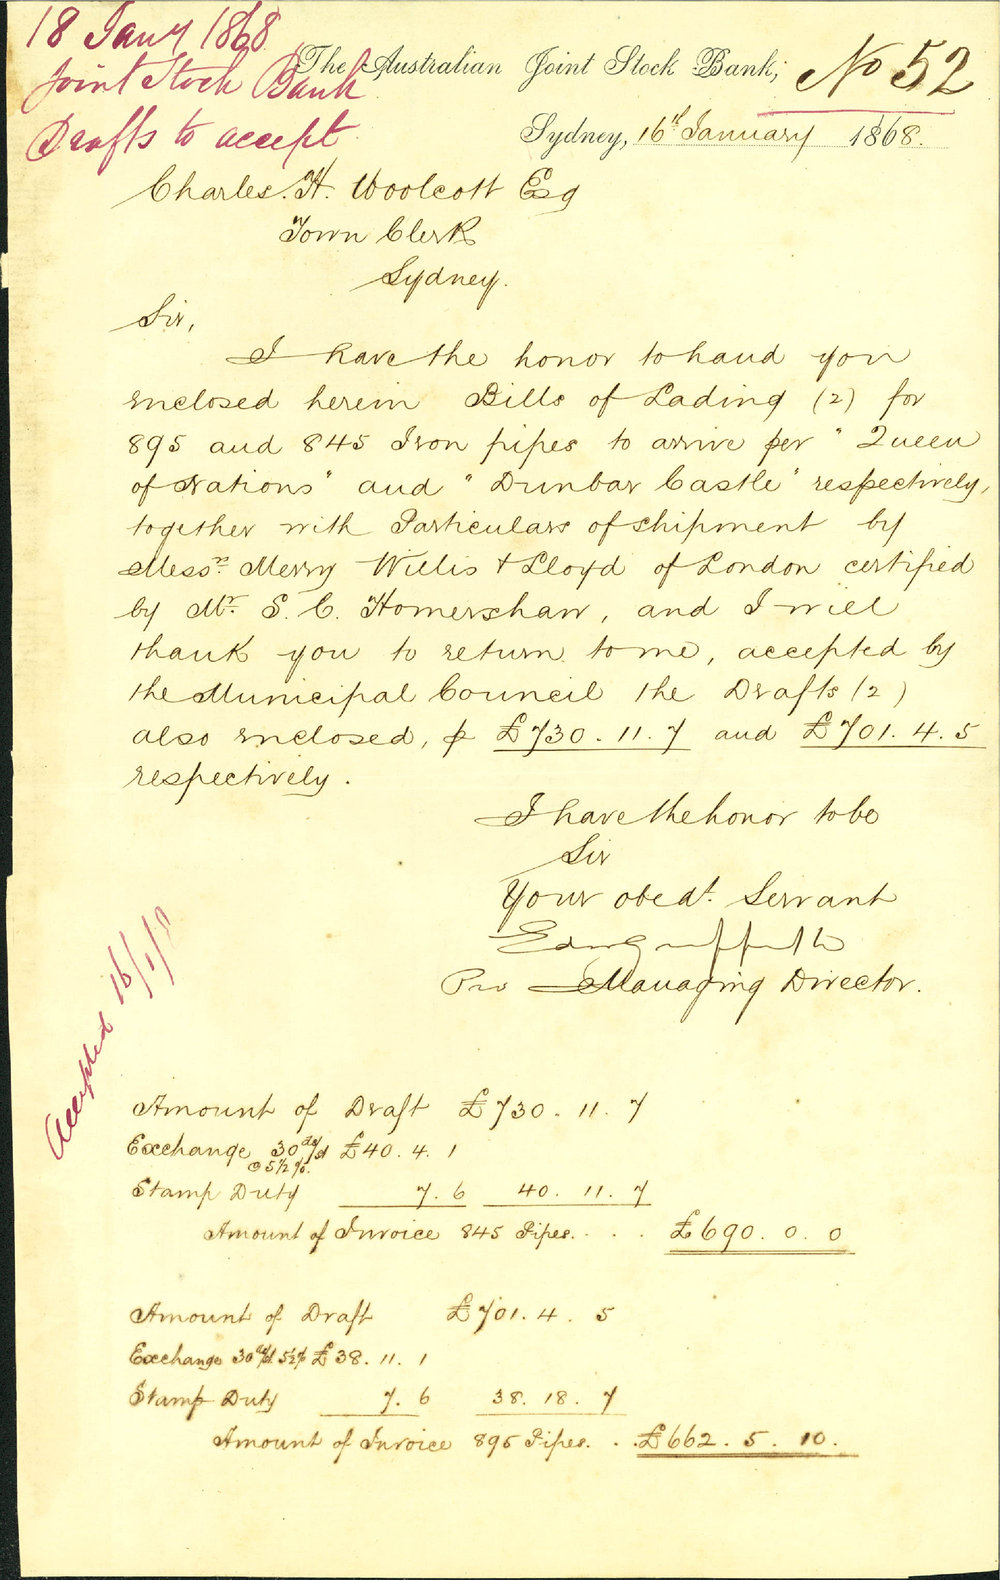 18 Jany 1868
Joint Stock Bank
Drafts to accept
The Australian Joint Stock Bank,
No 52
Sydney, 16th January 1868.
Charles. H. Woolcott Esq
Town Clerk
Sydney.
Sir,
I have the honor to hand you
enclosed herein Bills of Lading (2) for
895 and 845 Iron pipes to arrive per "Queen
of Nations" and "Dunbar Castle" respectively,
together with Particulars of shipment by
Messrs. Merry Willis & Lloyd of London certified
by Mr. S. C. Homersham, and I will
thank you to return to me, accepted by
the Municipal Council the Drafts (2)
also enclosed, p £730. 11. 7 and £701. 4. 5
respectively.
I have the honor to be
Sir
Your obedt. Servant
Edw Griffith
Pro Managing Director.
Accepted 16/1/8
Amount of Draft £730. 11. 7
Exchange 30 d/d £40. 4. 1
@ 5½ %.
Stamp Duty 7. 6 40. 11. 7
Amount of Invoice 845 Pipes. . . . £690. 0. 0
Amount of Draft £701. 4. 5
Exchange 30 d/d 5½ % £38. 11. 1
Stamp Duty 7. 6 38. 18. 7
Amount of Invoice 895 Pipes. . . £662. 5. 10.